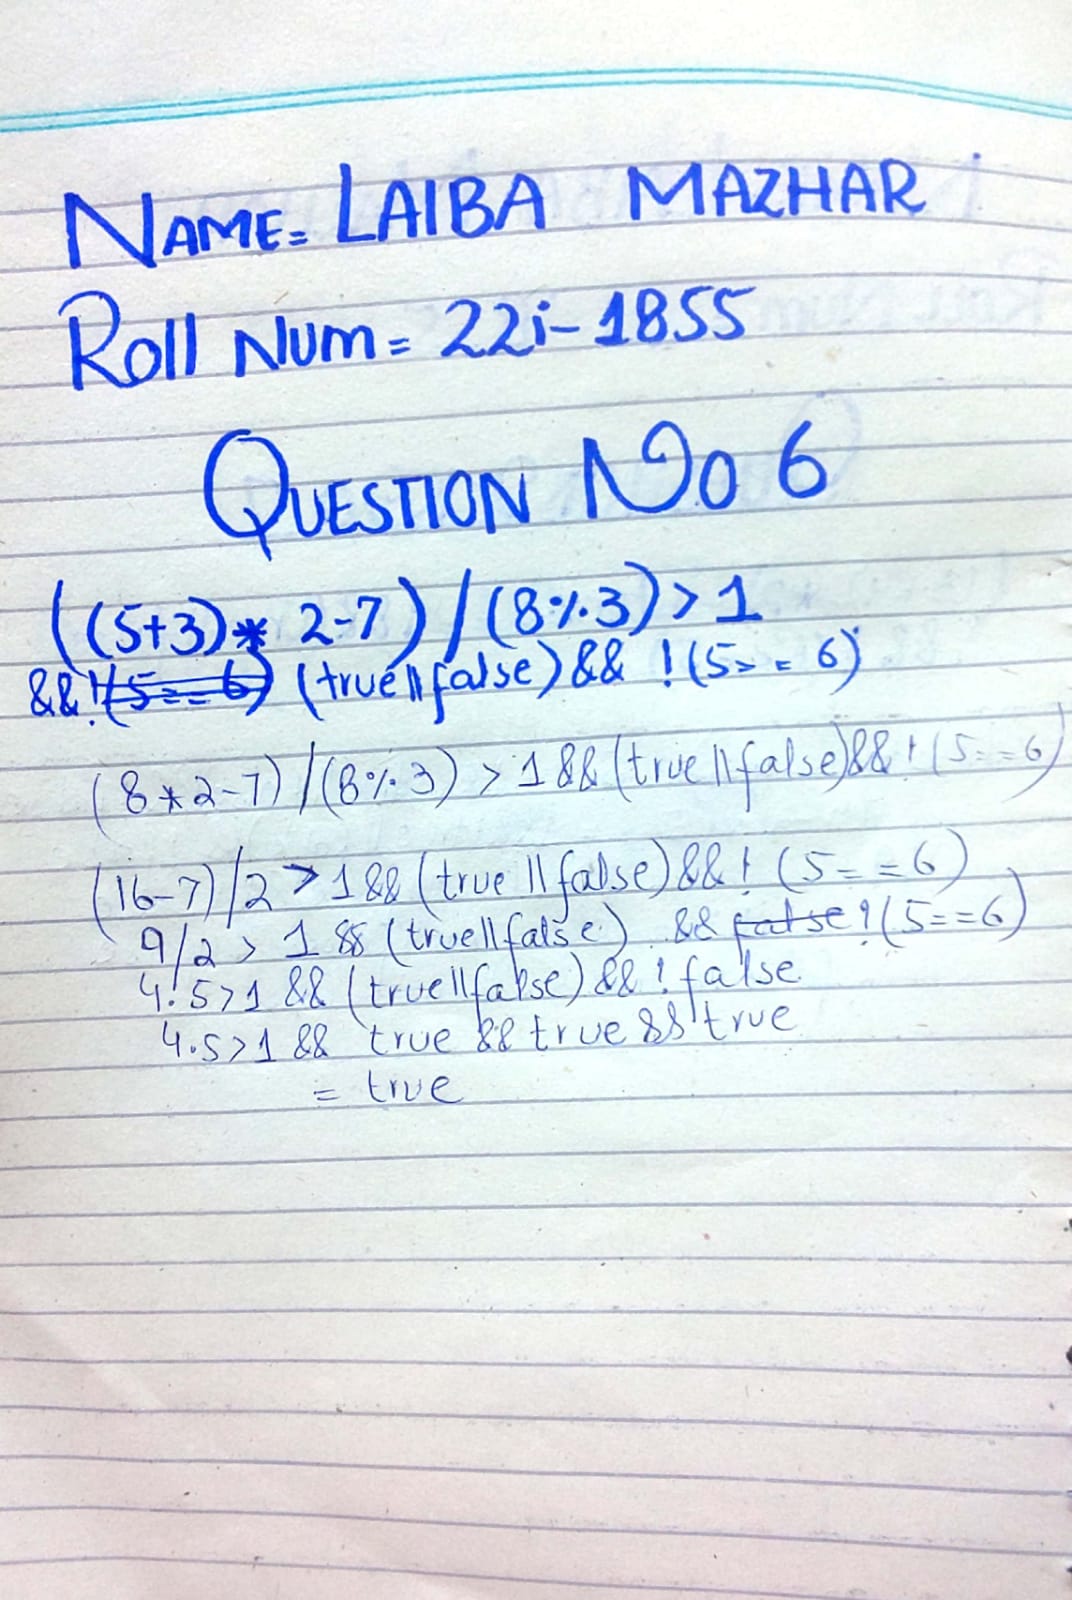 NAME= LAIBA MAZHAR
Roll Num= 22i-1855
QUESTION No 6
((5+3)* 2-7)/(8%3)>1
&&!(5==6) (true||false)&& !(5== 6)
(8*2-7)/(8%3) > 1&&(true||false)&&!(5==6)
(16-7)/2 > 1&&(true||false)&&! (5==6)
9/2 > 1 && (true||false) && false !(5==6)
4.5>1 && (true||false)&& ! false
4.5>1 && true && true && true
= true